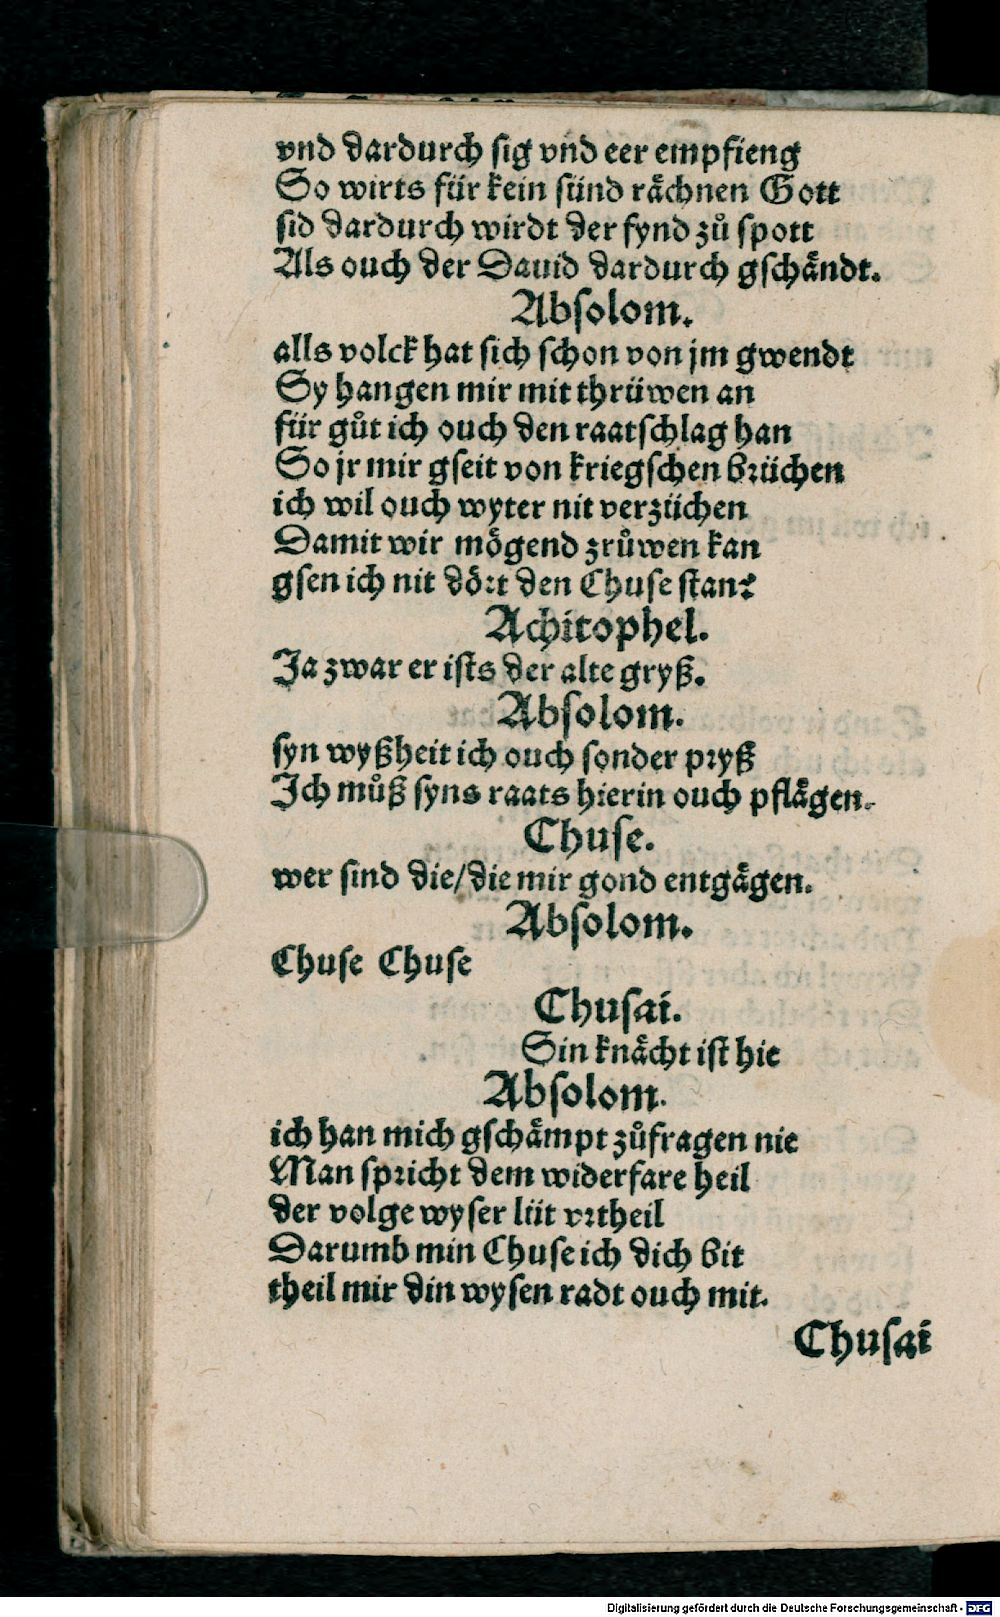 vnd dardurch sig vnd eer empfieng
So wirts für kein sünd rächnen Gott
sid dardurch wirdt der fynd zů spott
Als ouch der Dauid dardurch gschändt.
Absolom.
alls volck hat sich schon von jm gwendt
Sy hangen mir mit thrüwen an
für gůt ich ouch den raatschlag han
So jr mir gseit von kriegschen brüchen
ich wil ouch wyter nit verzüchen
Damit wir mögend zrůwen kan
gsen ich nit dört den Chuse stan?
Achitophel.
Ja zwar er ists der alte gryß.
Absolom.
syn wyßheit ich ouch sonder pryß
Ich můß syns raats hierin ouch pflägen.
Chuse.
wer sind die/die mir gond entgägen.
Absolom.
Chuse Chuse
Chusai.
Sin knächt ist hie
Absolom.
ich han mich gschämpt zůfragen nie
Man spricht dem widerfare heil
der volge wyser lüt vrtheil
Darumb min Chuse ich dich bit
theil mir din wysen radt ouch mit.
Chusai
Digitalisierung gefördert durch die Deutsche Forschungsgemeinschaft - DFG